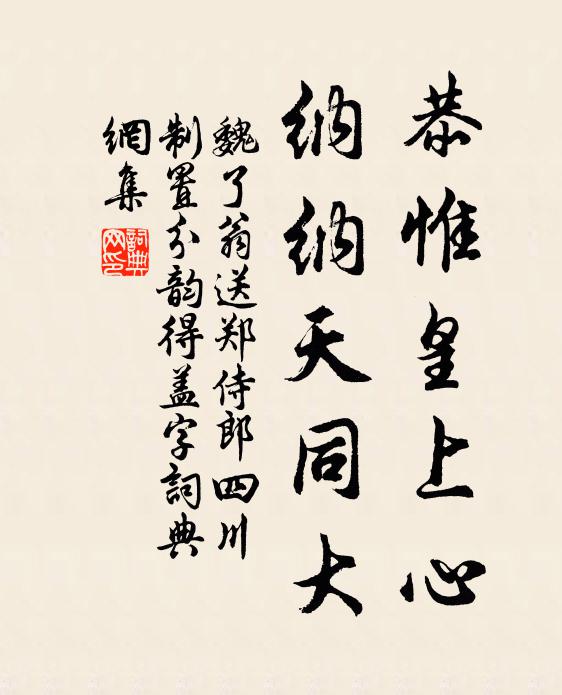 恭惟皇上心
纳纳天同大
魏了翁送郑侍郎四川
制置分韵得盖字詞典
網集
詞典網印